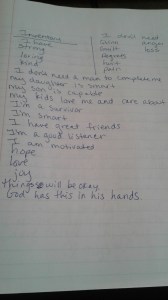 I have
strong
loving
kind
I don't need
Shame
anger
Guilt
hurt
pain
I don't need a man to complete me
my daughter is smart
my son is capable
my kids love me and care about
I'm a survivor
I'm smart
I have great friends
I'm a good listener
I am motivated
hope
love
joy
things will be okay
God has this in his hands